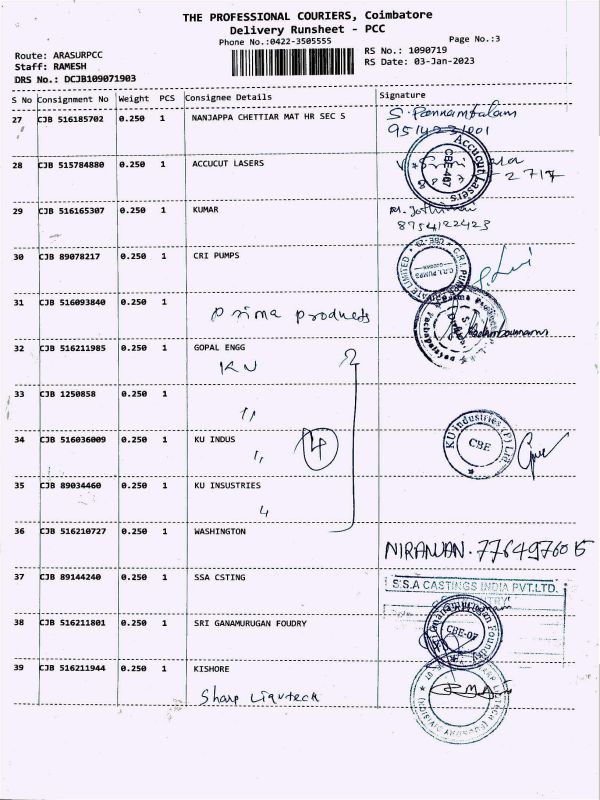 THE PROFESSIONAL COURIERS, Coimbatore
Delivery Runsheet - PCC
Phone No.:0422-3505555
Page No.:3
Route: ARASURPCC
RS No.: 1090719
Staff: RAMESH
RS Date: 03-Jan-2023
DRS No.: DCJB109071903
S No Consignment No Weight PCS Consignee Details Signature
27 CJB 516185702 0.250 1 NANJAPPA CHETTIAR MAT HR SEC S
S. Ponnambalam
28 CJB 515784880 0.250 1 ACCUCUT LASERS
Accucut Lasers
CBE-407
2717
29 CJB 516165307 0.250 1 KUMAR
8754122423
30 CJB 89078217 0.250 1 CRI PUMPS
C.R.I. PUMPS
31 CJB 516093840 0.250 1
Prima products
32 CJB 516211985 0.250 1 GOPAL ENGG
KU
33 CJB 1250858 0.250 1
34 CJB 516036009 0.250 1 KU INDUS
4
KU Industries (P) Ltd.
CBE
35 CJB 89034460 0.250 1 KU INSUSTRIES
36 CJB 516210727 0.250 1 WASHINGTON
NIRANJAN. 7764976015
37 CJB 89144240 0.250 1 SSA CSTING
S.S.A CASTINGS INDIA PVT.LTD.
38 CJB 516211801 0.250 1 SRI GANAMURUGAN FOUDRY
CBE-07
39 CJB 516211944 0.250 1 KISHORE
Sharp Liqvteck